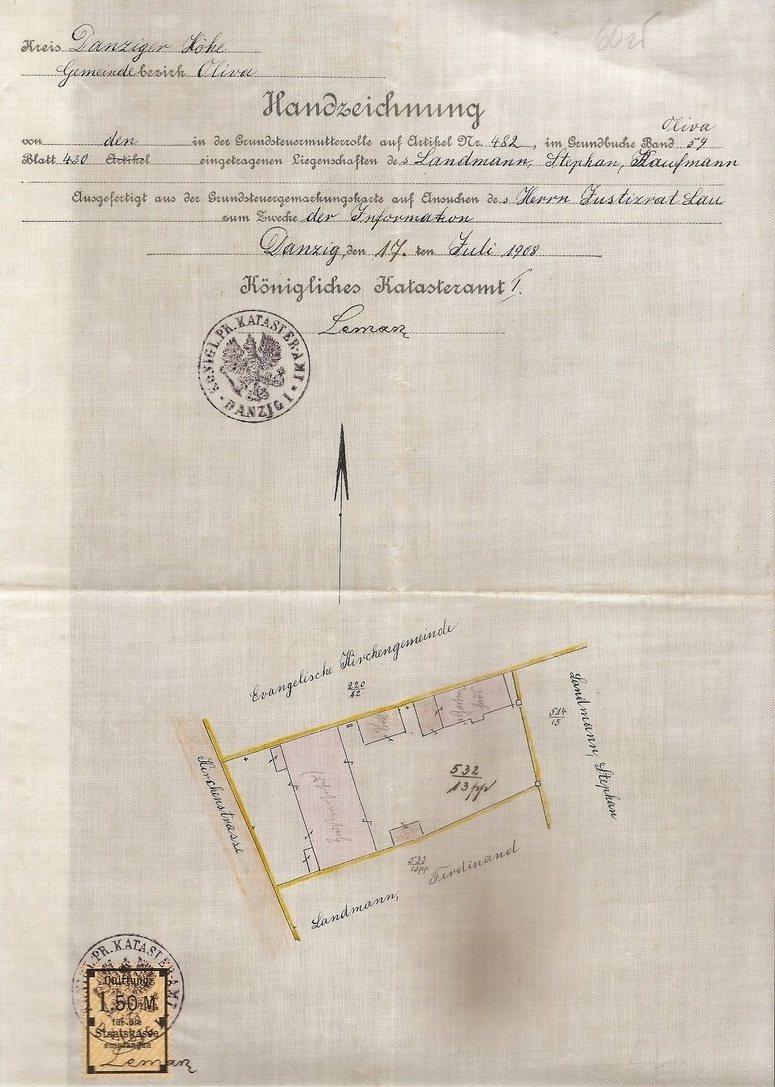 60 zł
Kreis Danziger Höhe
Gemeindebezirk Oliva
Handzeichnung
Oliva
von den in der Grundsteuermutterrolle auf Artikel Nr. 482, im Grundbuche Band 59
Blatt 430 Artikel eingetragenen Liegenschaften des Landmann, Stephan, Kaufmann
Ausgefertigt aus der Grundsteuergemarkungskarte auf Ansuchen des Herrn Justizrat Lau
zum Zwecke der Information
Danzig, den 17. ten Juli 1908
Königliches Katasteramt I.
Leman
KÖNIGL. PR. KATASTER-AMT
DANZIG I
Evangelische Kirchengemeinde
220
12
Landmann, Stephan
514
15
Kirchenstrasse
532
13 pp
533
13 pp
Landmann, Ferdinand
KÖNIGL. PR. KATASTER-AMT
Quittung
1.50 M
für die
Staatskasse
empfangen
Leman